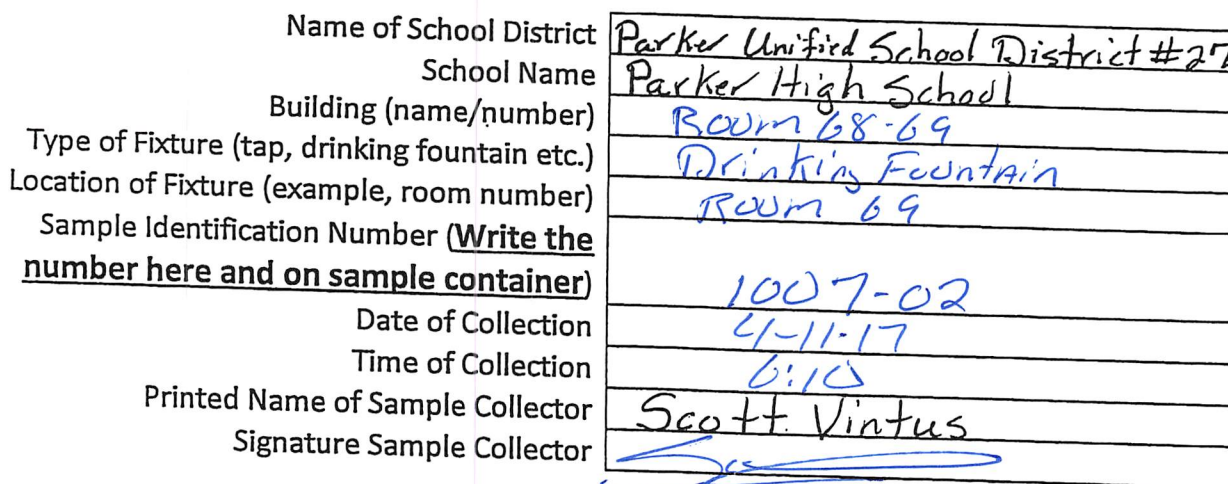 Name of School District Parker Unified School District #27
School Name Parker High School
Building (name/number) Room 68-69
Type of Fixture (tap, drinking fountain etc.) Drinking Fountain
Location of Fixture (example, room number) Room 69
Sample Identification Number (Write the
number here and on sample container) 1007-02
Date of Collection 4-11-17
Time of Collection 6:10
Printed Name of Sample Collector Scott Vintus
Signature Sample Collector